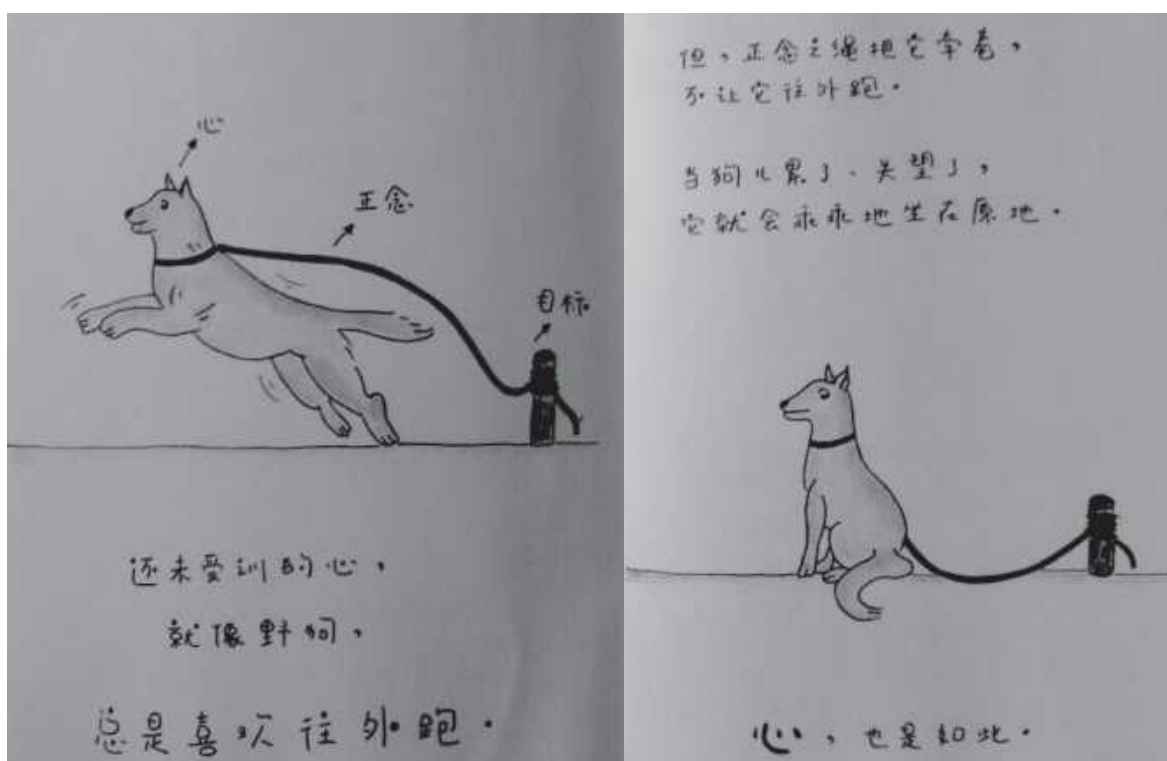 心
正念
目标
还未受训的心，
就像野狗，
总是喜欢往外跑。
但，正念之绳把它牵着，
不让它往外跑。
当狗儿累了、失望了，
它就会乖乖地坐在原地。
心，也是如此。